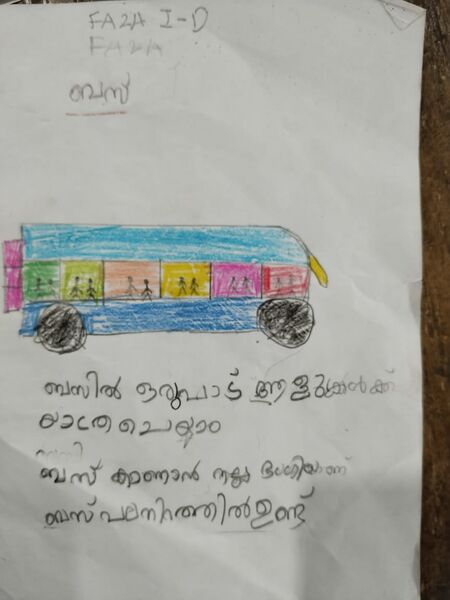 FAZA I-D
FAZA
ബസ്
ബസിൽ ഒരുപാട് ആളുകൾക്ക്
യാത്ര ചെയ്യാം
ബസ് കാണാൻ നല്ല ഭംഗിയാണ്
ബസ് പലനിറത്തിൽ ഉണ്ട്